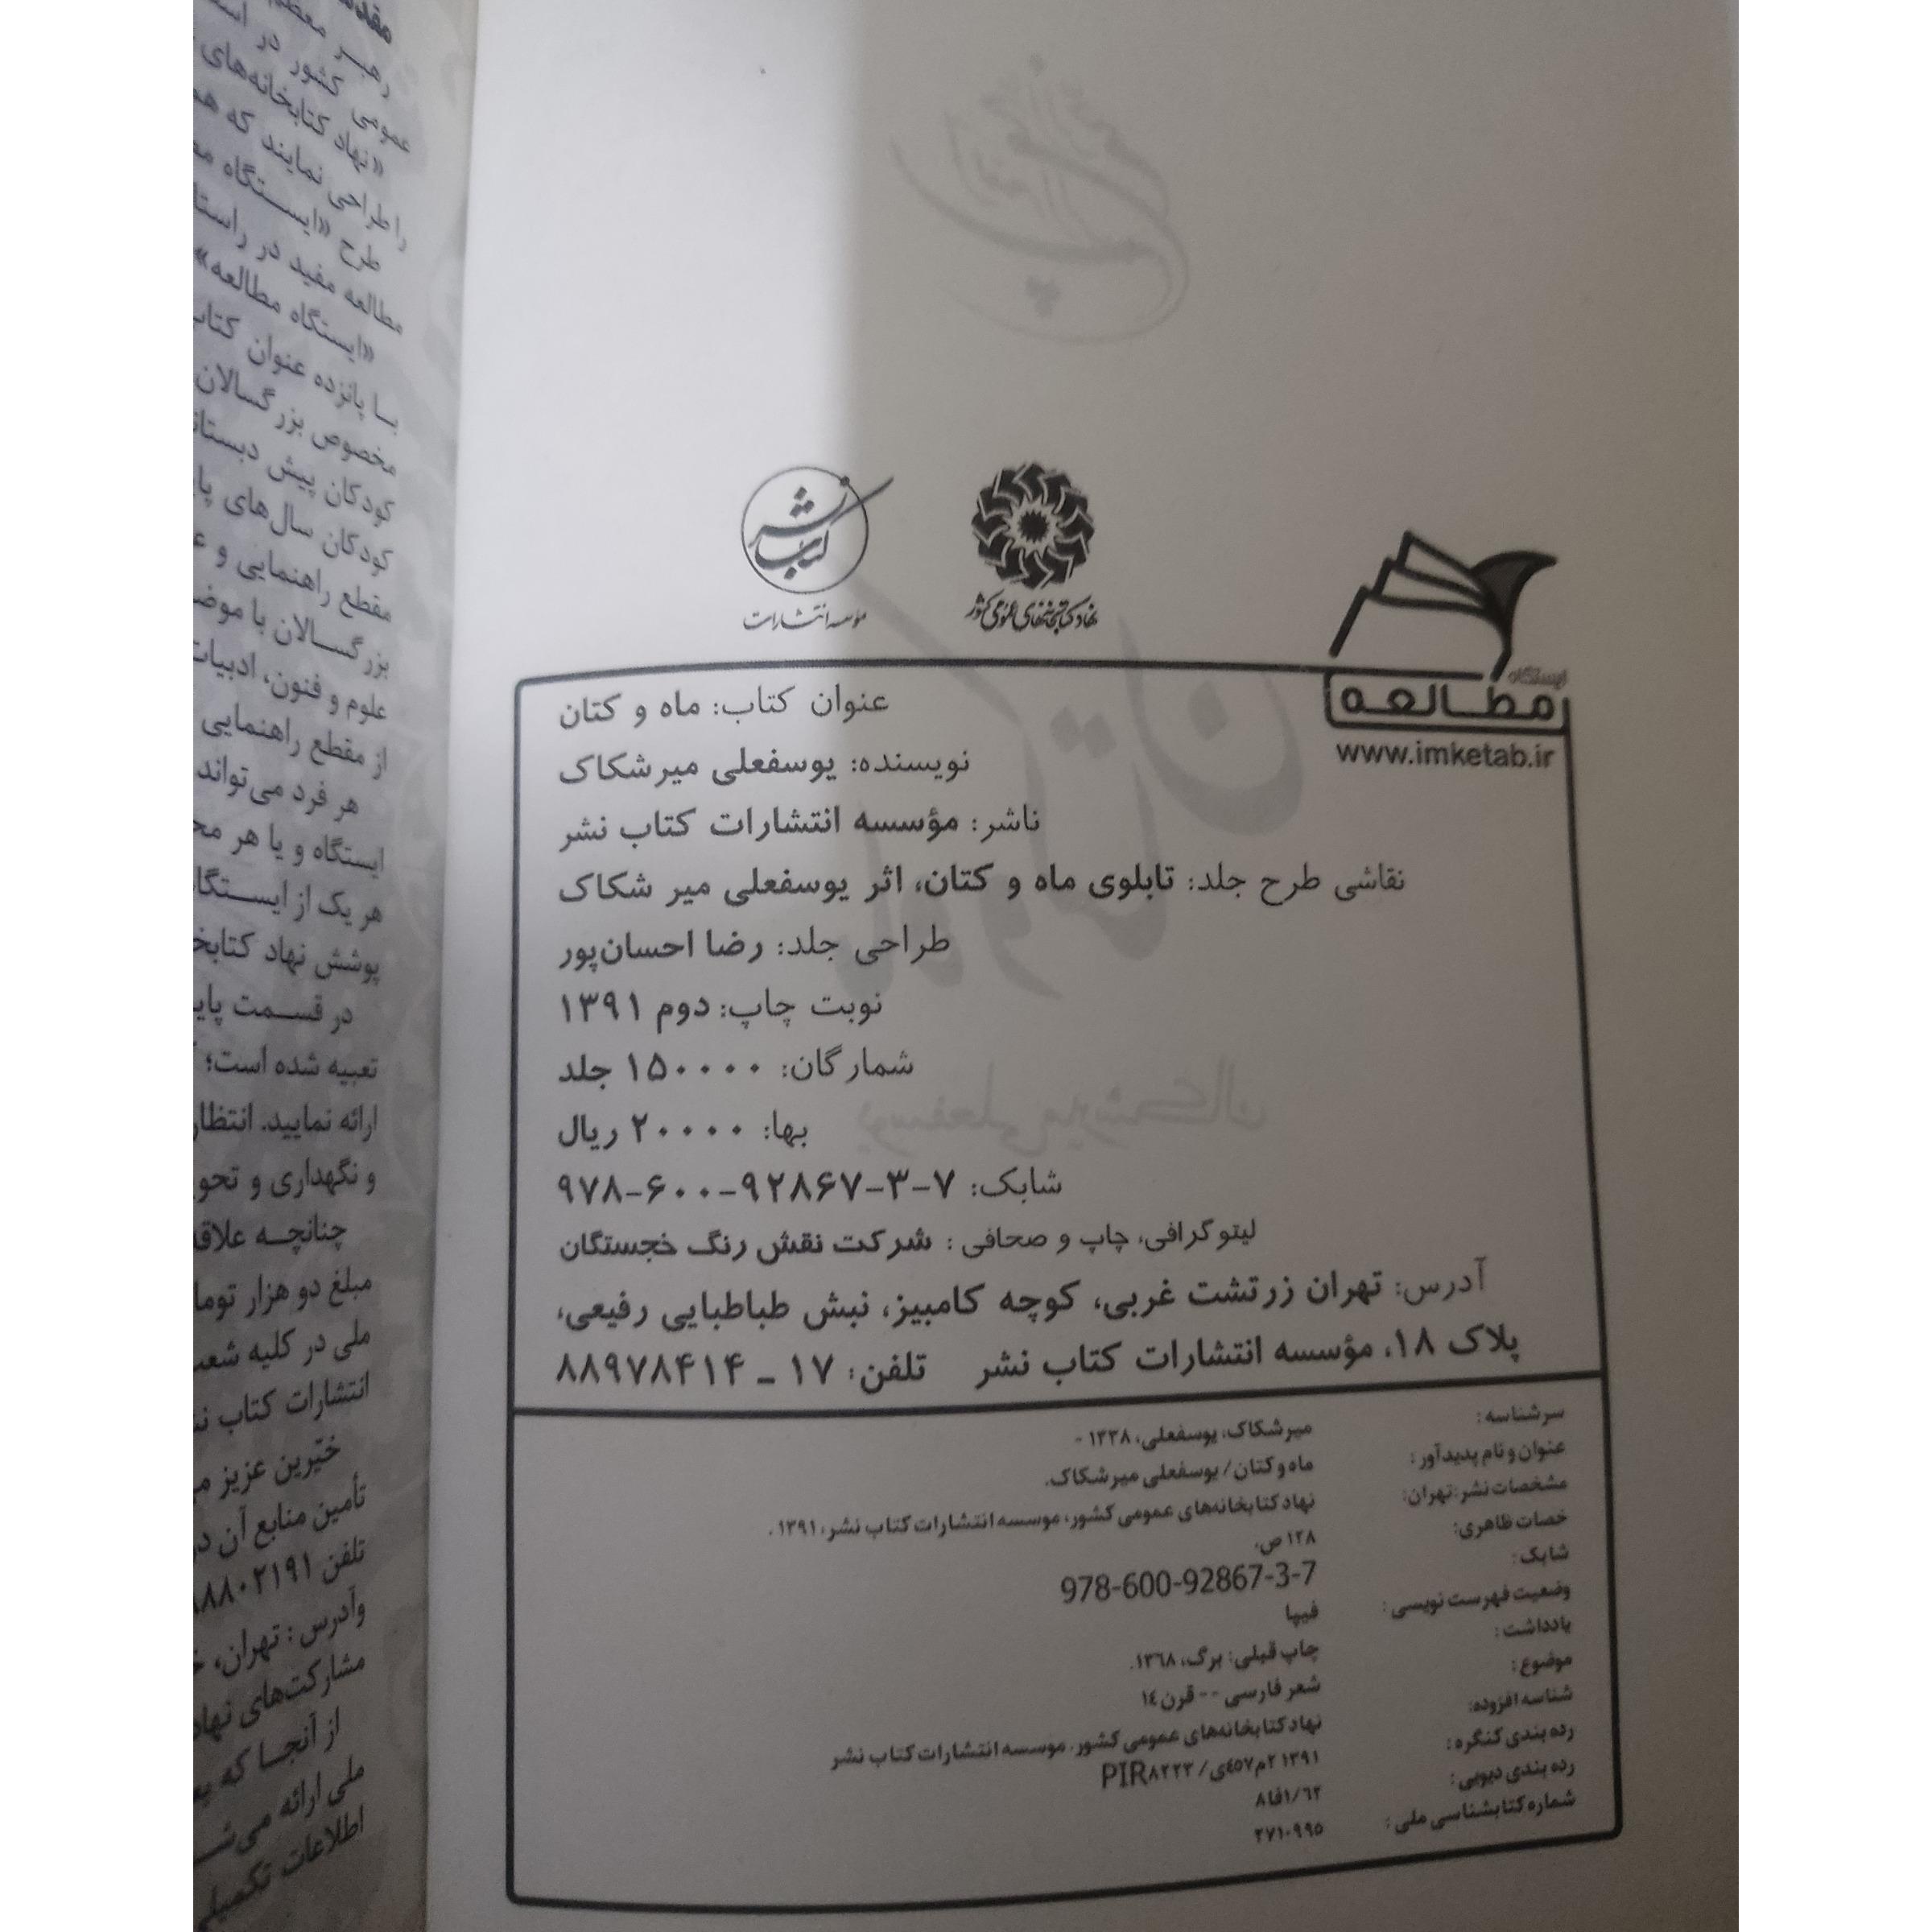 کتاب نشر
مؤسسه انتشارات
نهاد کتابخانه‌های عمومی کشور
ایستگاه
مطالعه
www.imketab.ir
عنوان کتاب: ماه و کتان
نویسنده: یوسفعلی میرشکاک
ناشر: مؤسسه انتشارات کتاب نشر
نقاشی طرح جلد: تابلوی ماه و کتان، اثر یوسفعلی میر شکاک
طراحی جلد: رضا احسان‌پور
نوبت چاپ: دوم ۱۳۹۱
شمارگان: ۱۵۰۰۰۰ جلد
بها: ۲۰۰۰۰ ریال
شابک: ۷-۳-۹۲۸۶۷-۶۰۰-۹۷۸
لیتوگرافی، چاپ و صحافی : شرکت نقش رنگ خجستگان
آدرس: تهران زرتشت غربی، کوچه کامبیز، نبش طباطبایی رفیعی،
پلاک ۱۸، مؤسسه انتشارات کتاب نشر تلفن: ۱۷ ـ ۸۸۹۷۸۴۱۴
سرشناسه : میرشکاک، یوسفعلی، ۱۳۳۸ -
عنوان و نام پدیدآور : ماه و کتان/ یوسفعلی میرشکاک.
مشخصات نشر:تهران: نهاد کتابخانه‌های عمومی کشور، موسسه انتشارات کتاب نشر، ۱۳۹۱.
خصات ظاهری: ۱۲۸ ص.
شابک : 978-600-92867-3-7
وضعیت فهرست نویسی : فیپا
یادداشت : چاپ قبلی: برگ، ۱۳۶۸.
موضوع : شعر فارسی -- قرن ۱۴
شناسه افزوده: نهاد کتابخانه‌های عمومی کشور. موسسه انتشارات کتاب نشر
رده بندی کنگره : ۱۳۹۱ ۲م۴۵۷ی/ PIR۸۲۲۳
رده بندی دیویی : ۸فا۱/۶۲
شماره کتابشناسی ملی : ۲۷۱۰۹۹۵
رهبر
عمومی کشور در
«نهاد کتابخانه‌های
را طراحی نمایند که
طرح «ایستگاه
مطالعه مفید در
«ایستگاه مطالعه»
با پانزده عنوان
مخصوص بزرگسالان
کودکان پیش
کودکان سال‌های
مقطع راهنمایی و
بزرگسالان با
علوم و فنون،
از مقطع راهنمایی
هر فرد می‌تواند
ایستگاه و یا هر
هر یک از
پوشش نهاد
در قسمت
تعبیه شده است؛
ارائه نمایید.
و نگهداری و
چنانچه
مبلغ دو هزار
ملی در کلیه
انتشارات کتاب
خیّرین عزیز
تأمین منابع آن
تلفن
وآدرس : تهران،
مشارکت‌های
از آنجا که
ملی ارائه
اطلاعات